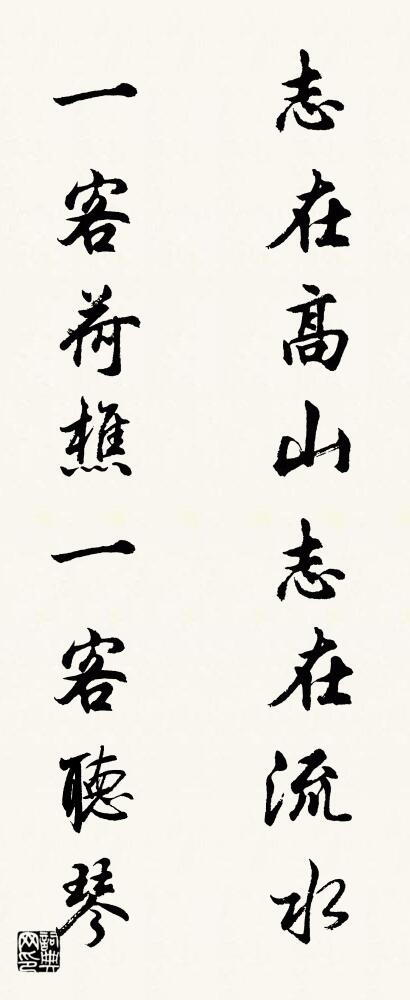 志在高山志在流水
一客荷樵一客聽琴